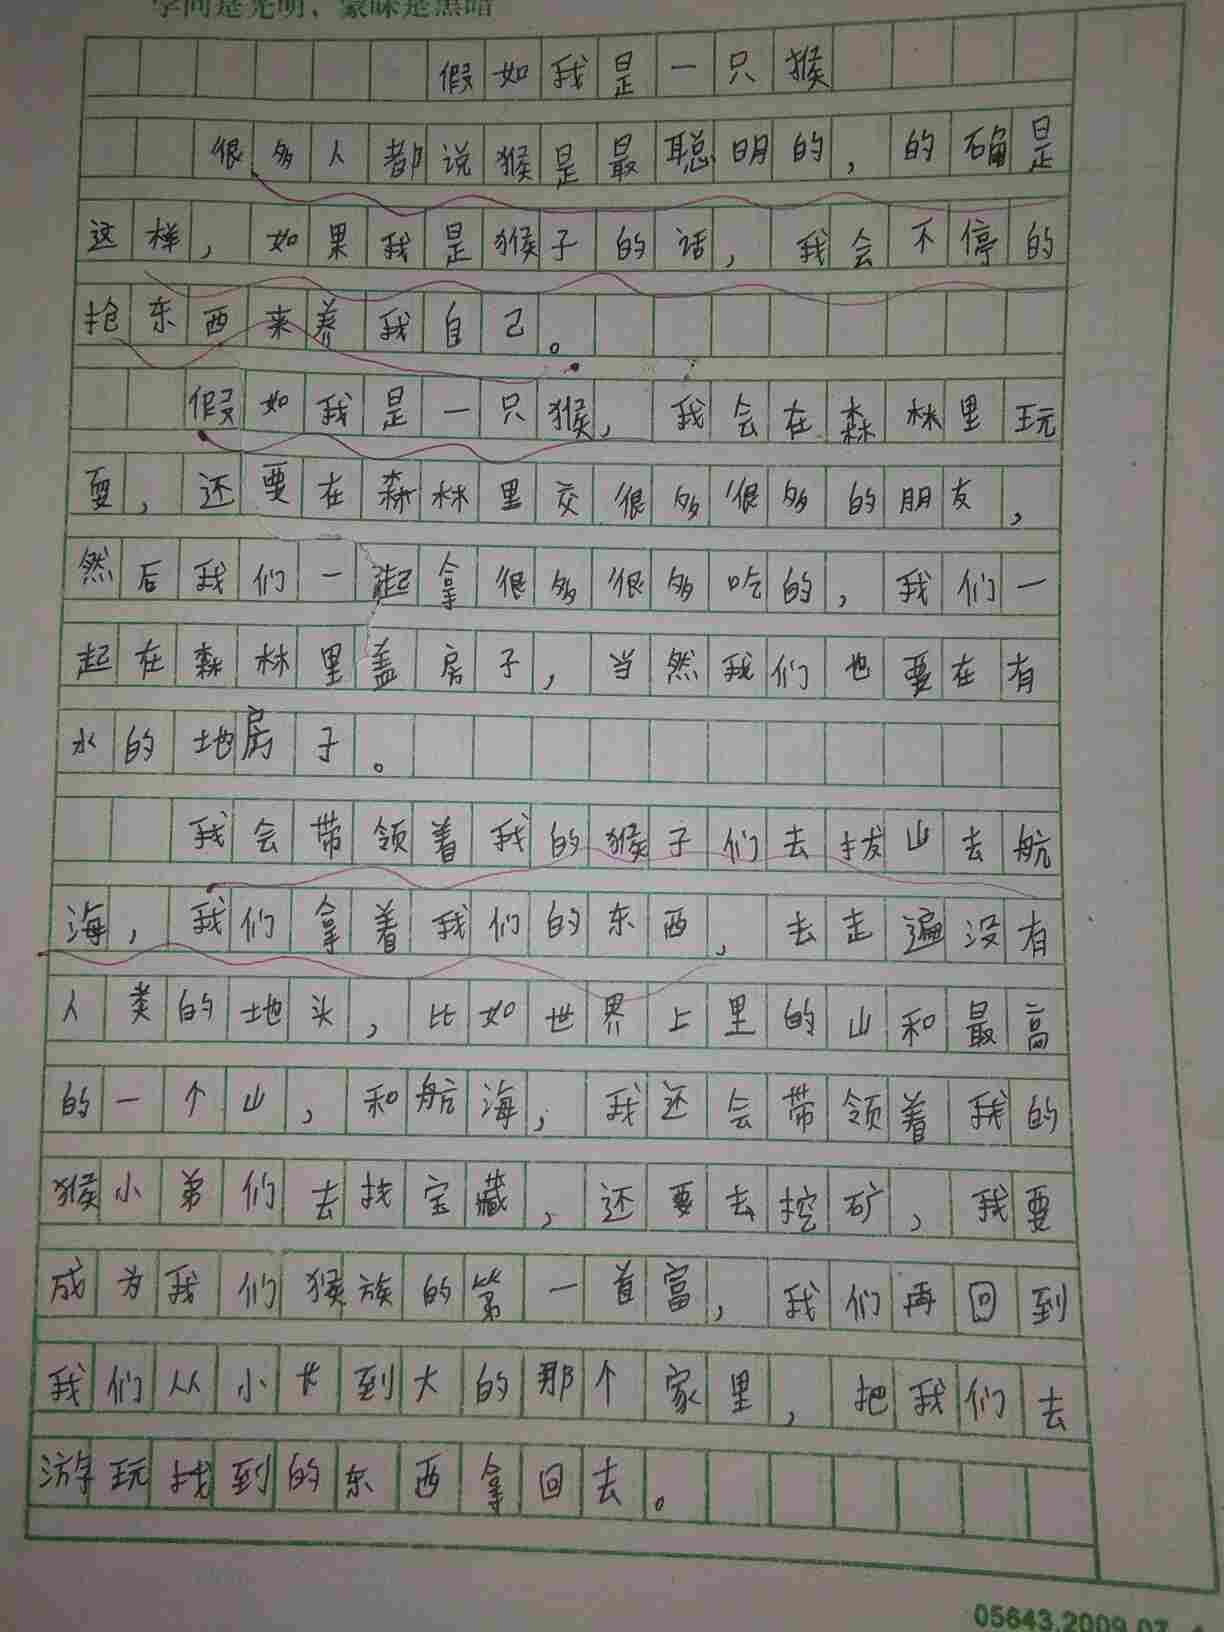 学问是光明，蒙昧是黑暗
假如我是一只猴
很多人都说猴是最聪明的，的确是
这样，如果我是猴子的话，我会不停的
抢东西来养我自己。
假如我是一只猴，我会在森林里玩
耍，还要在森林里交很多很多的朋友，
然后我们一起拿很多很多吃的，我们一
起在森林里盖房子，当然我们也要在有
水的地房子。
我会带领着我的猴子们去拔山去航
海，我们拿着我们的东西，去走遍没有
人类的地头，比如世界上里的山和最高
的一个山，和航海，我还会带领着我的
猴小弟们去找宝藏，还要去挖矿，我要
成为我们猴族的第一首富，我们再回到
我们从小长到大的那个家里，把我们去
游玩找到的东西拿回去。
05643.2009.07